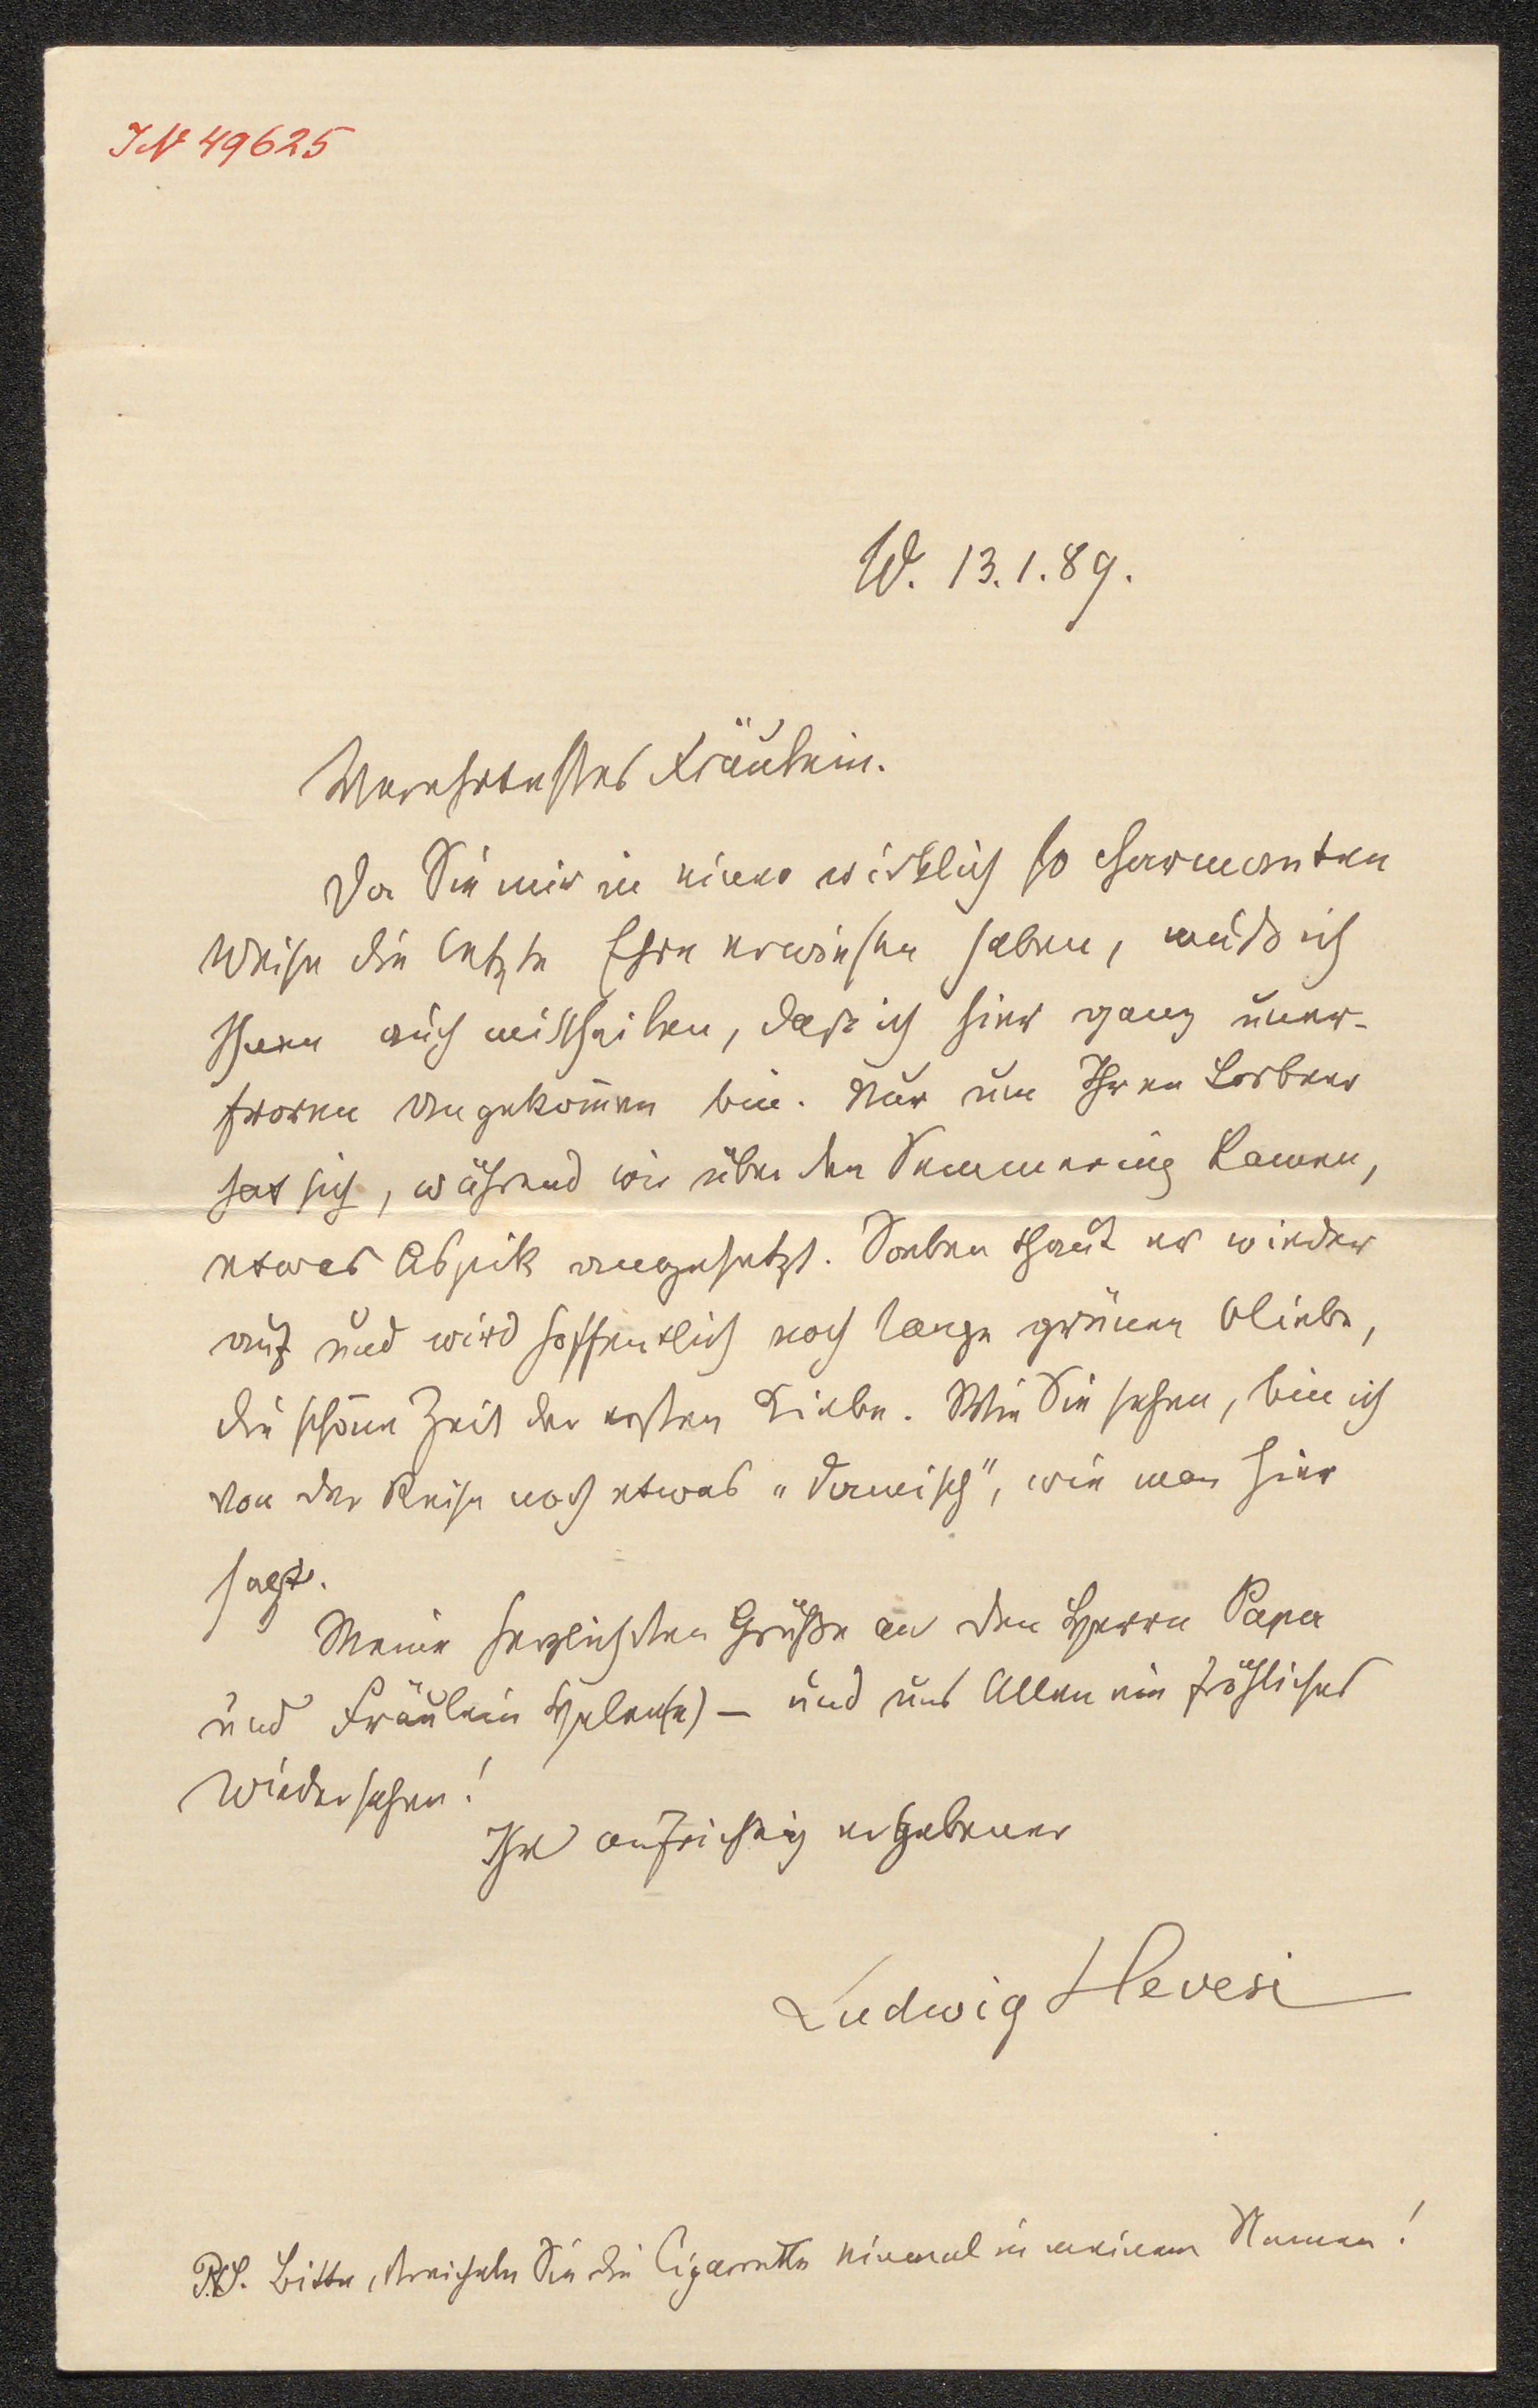 IN 49625
W. 13.1.89.
Verehrtestes Fräulein.
Da Sie mir in einer wirklich so charmanten
Weise die letzte Ehre erwiesen haben, muß ich
Ihnen auch mittheilen, daß ich hier ganz uner-
froren angekom̄en bin. Nur um Ihren Lorbeer
hat sich, während wir über den Semmering kamen,
etwas Aspik angesetzt. Soeben thaut er wieder
auf und wird hoffentlich noch lange grünen bliebe,
die schöne Zeit der ersten Liebe. Wie Sie sehen, bin ich
von der Reise noch etwas „damisch“, wie man hier
sagt.
Meine herzlichsten Grüße an den Herrn Papa
und Fräulein Helen(e) – und uns Allen ein fröhliches
Wiedersehen!
Ihr aufrichtig ergebener
Ludwig Hevesi
P.S. Bitte, streicheln Sie die Cigarrette einmal in meinem Namen!